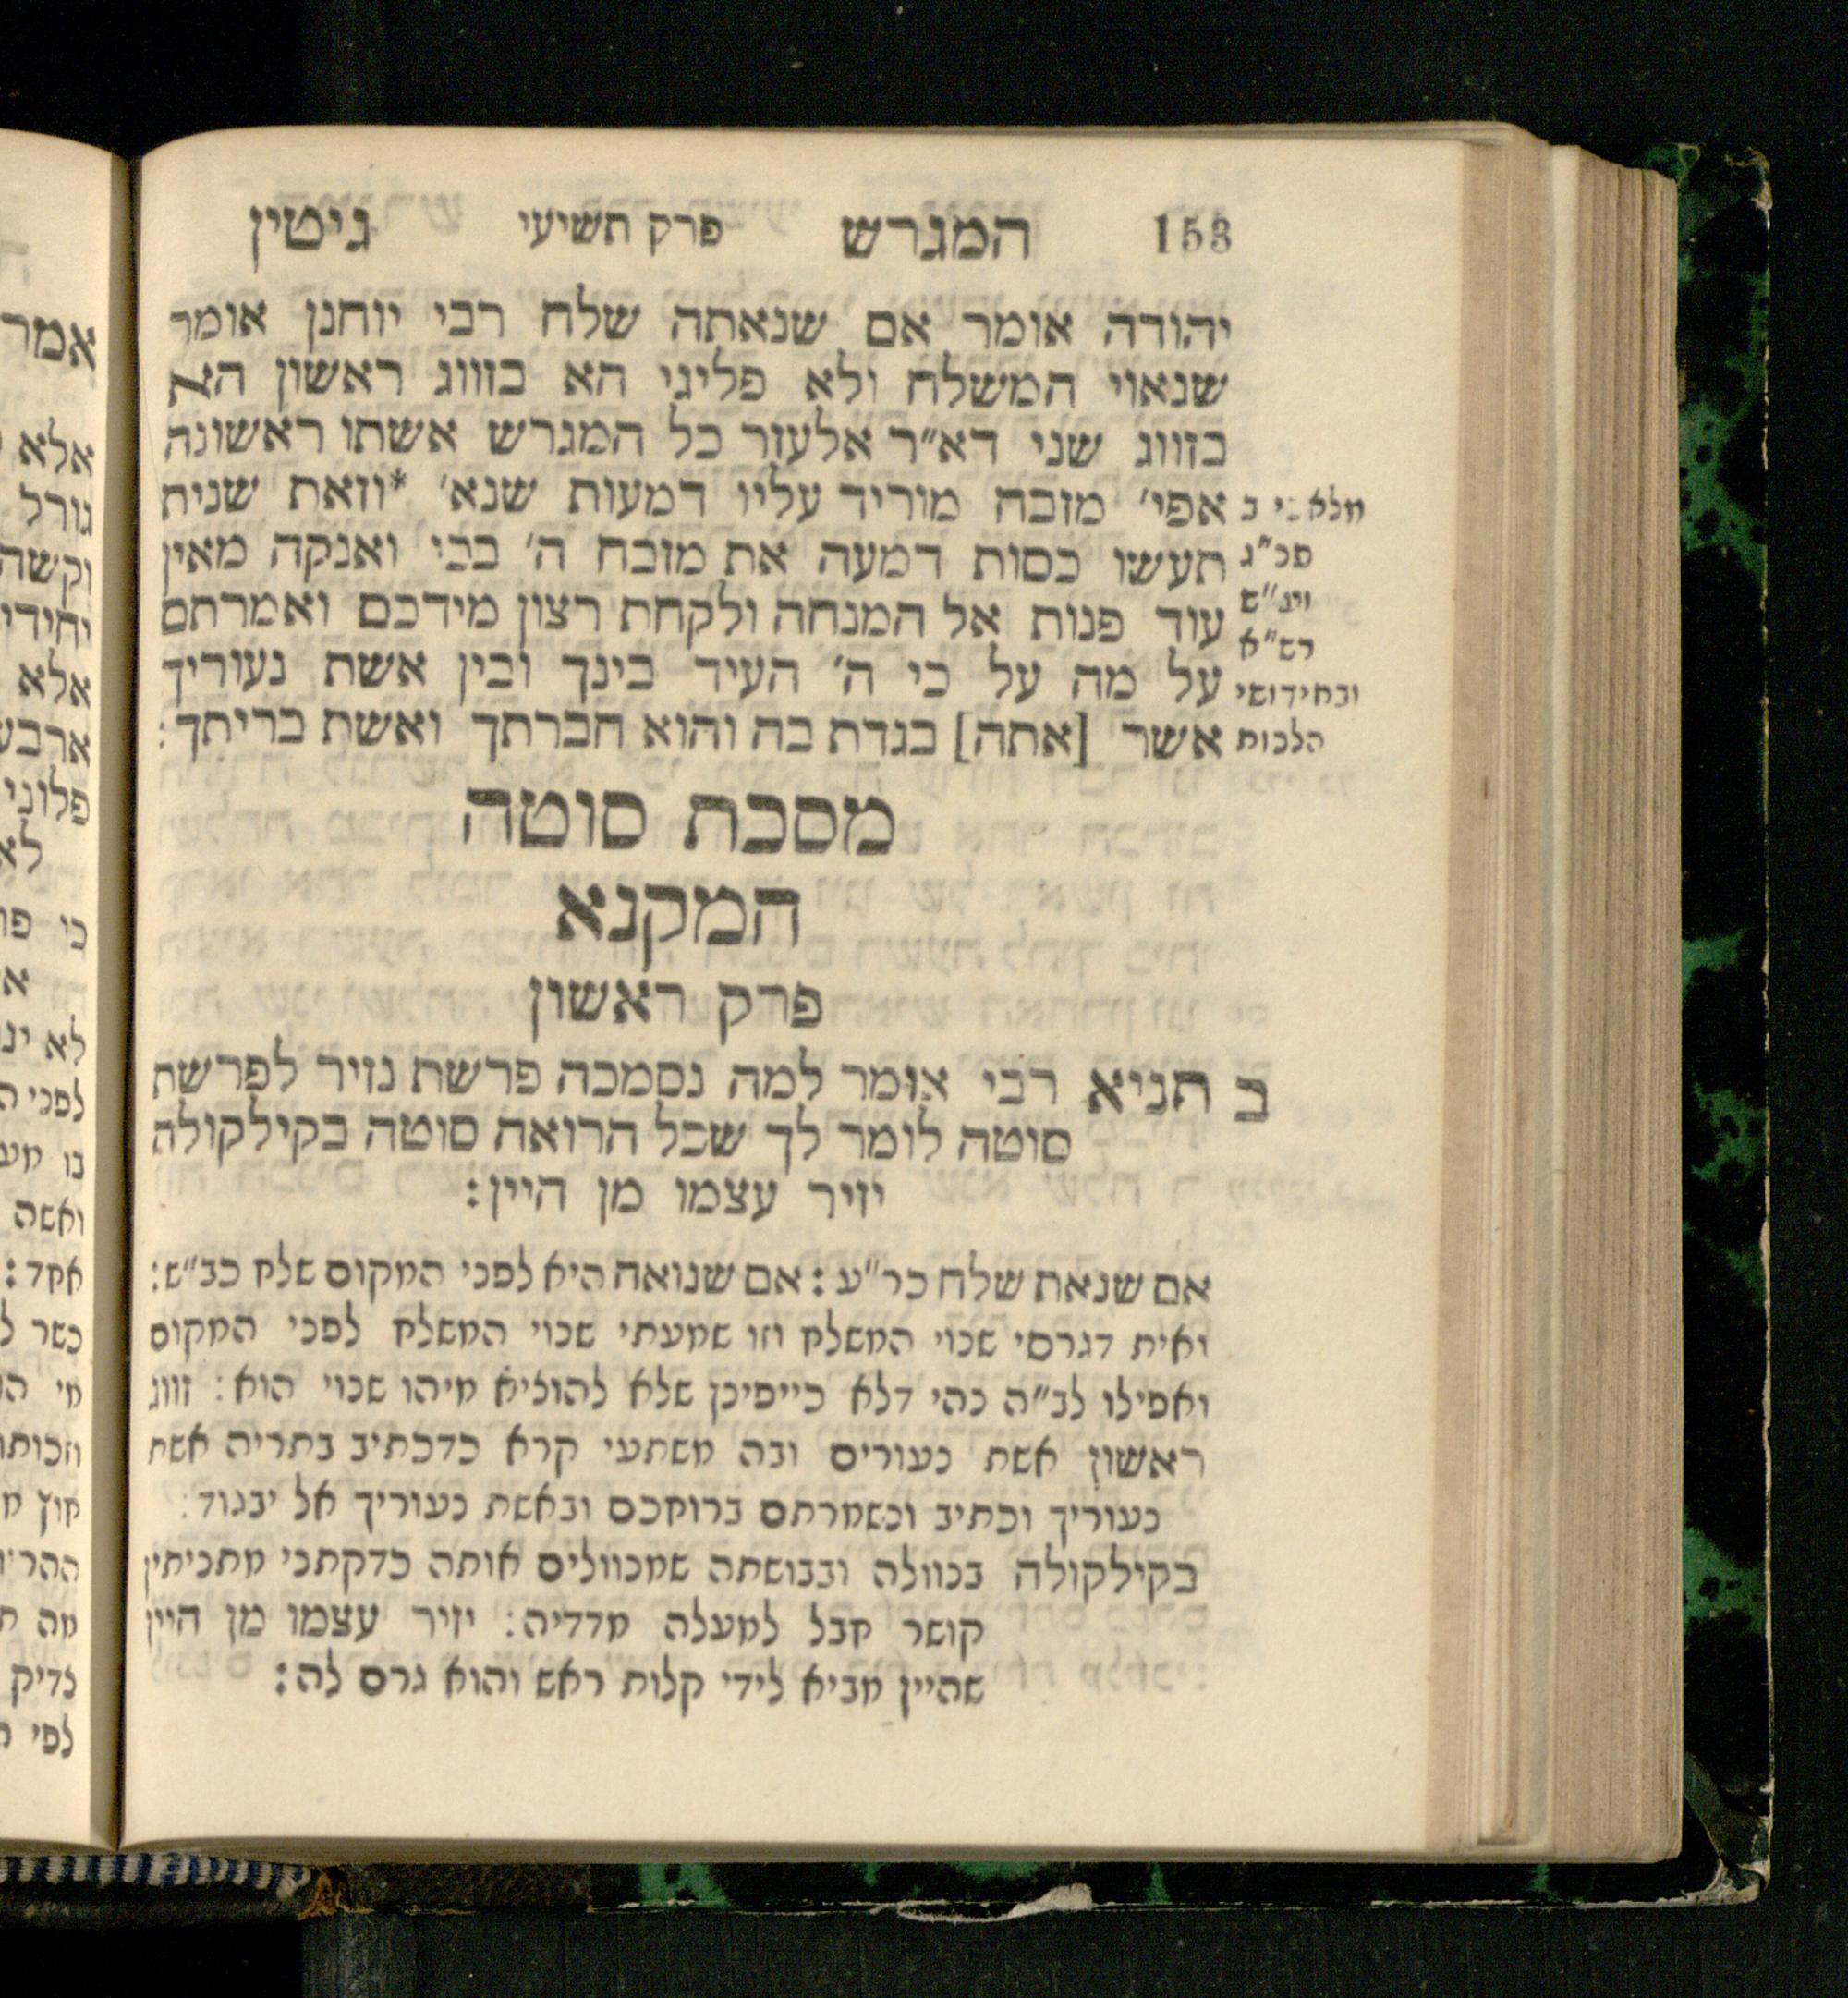 153 המגרש פרק תשיעי גיטין
יהודה אומר אם שנאתה שלח רבי יוחנן אומר
שנאוי המשלח ולא פליגי הא בזווג ראשון הא
בזווג שני דא״ר אלעזר כל המגרש אשתו ראשונה
אפי׳ מזבח מוריד עליו דמעות שנא׳ *וזאת שנית
תעשו כסות דמעה את מזבח ה׳ בכי ואנקה מאין
עוד פנות אל המנחה ולקחת רצון מידכם ואמרתם
על מה על כי ה׳ העיד בינך ובין אשת נעוריך
אשר [אתה] בגדת בה והוא חברתך ואשת בריתך:
מלאכי ב
סכ״ג
ועי״ש
רש״א
ובחידושי
הלכות
מסכת סוטה
המקנא
פרק ראשון
ב תניא רבי אומר למה נסמכה פרשת נזיר לפרשת
סוטה לומר לך שכל הרואה סוטה בקילקולה
יזיר עצמו מן היין:
אם שנאת שלח כר״ע: אם שנואה היא לפני המקום שלח כב״ש:
ואית דגרסי שנוי המשלח וזו שמעתי שנוי המשלח לפני המקום
ואפילו לב״ה נהי דלא כייפינן שלא להוציא מיהו שנוי הוא: זווג
ראשון אשת נעורים ובה משתעי קרא כדכתיב בתריה אשת
נעוריך וכתיב ונשמרתם ברוחכם ובאשת נעוריך אל יבגוד:
בקילקולה בנוולה ובבושתה שמנוולים אותה כדקתני מתניתין
קושר חבל למעלה מדדיה: יזיר עצמו מן היין
שהיין מביא לידי קלות ראש והוא גרם לה: